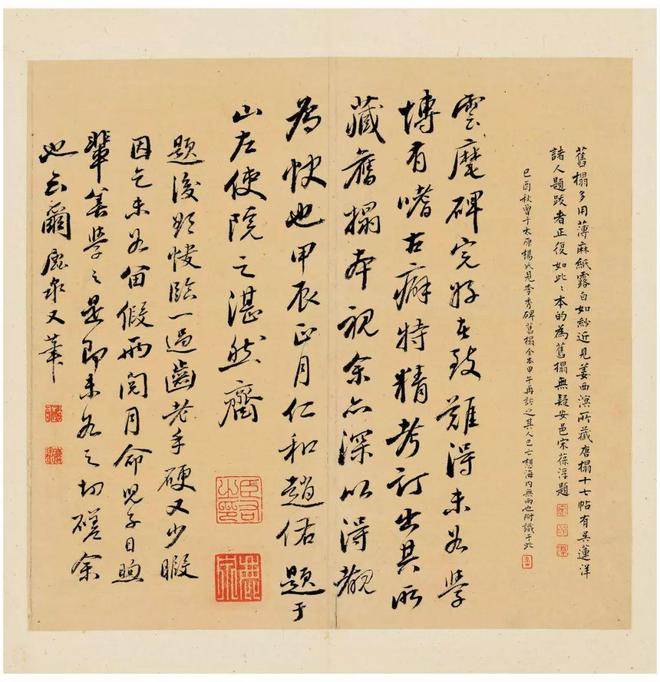 舊搨多用薄麻紙露白如紗近見姜西溟所藏唐搨十七帖有吳蓮洋
諸人題跋者正復如此〻本的為舊搨無疑安邑宋葆淳題
己酉秋曾于太原楊氏見李秀碑舊搨全本甲午再訪之其人已亡想海内無兩也附識于此
雲麾碑完好致難得未谷學
博有嗜古癖特精考訂出其所
藏舊搨本視余亦深以得觀
為快也甲辰正月仁和趙佑題于
山左使院之湛然齋
題後臨一過齒老手硬又少暇
因乞未谷留假兩閱月命兒子日煦
輩善學〻是即未谷之切磋余
也云爾 鹿泉又筆